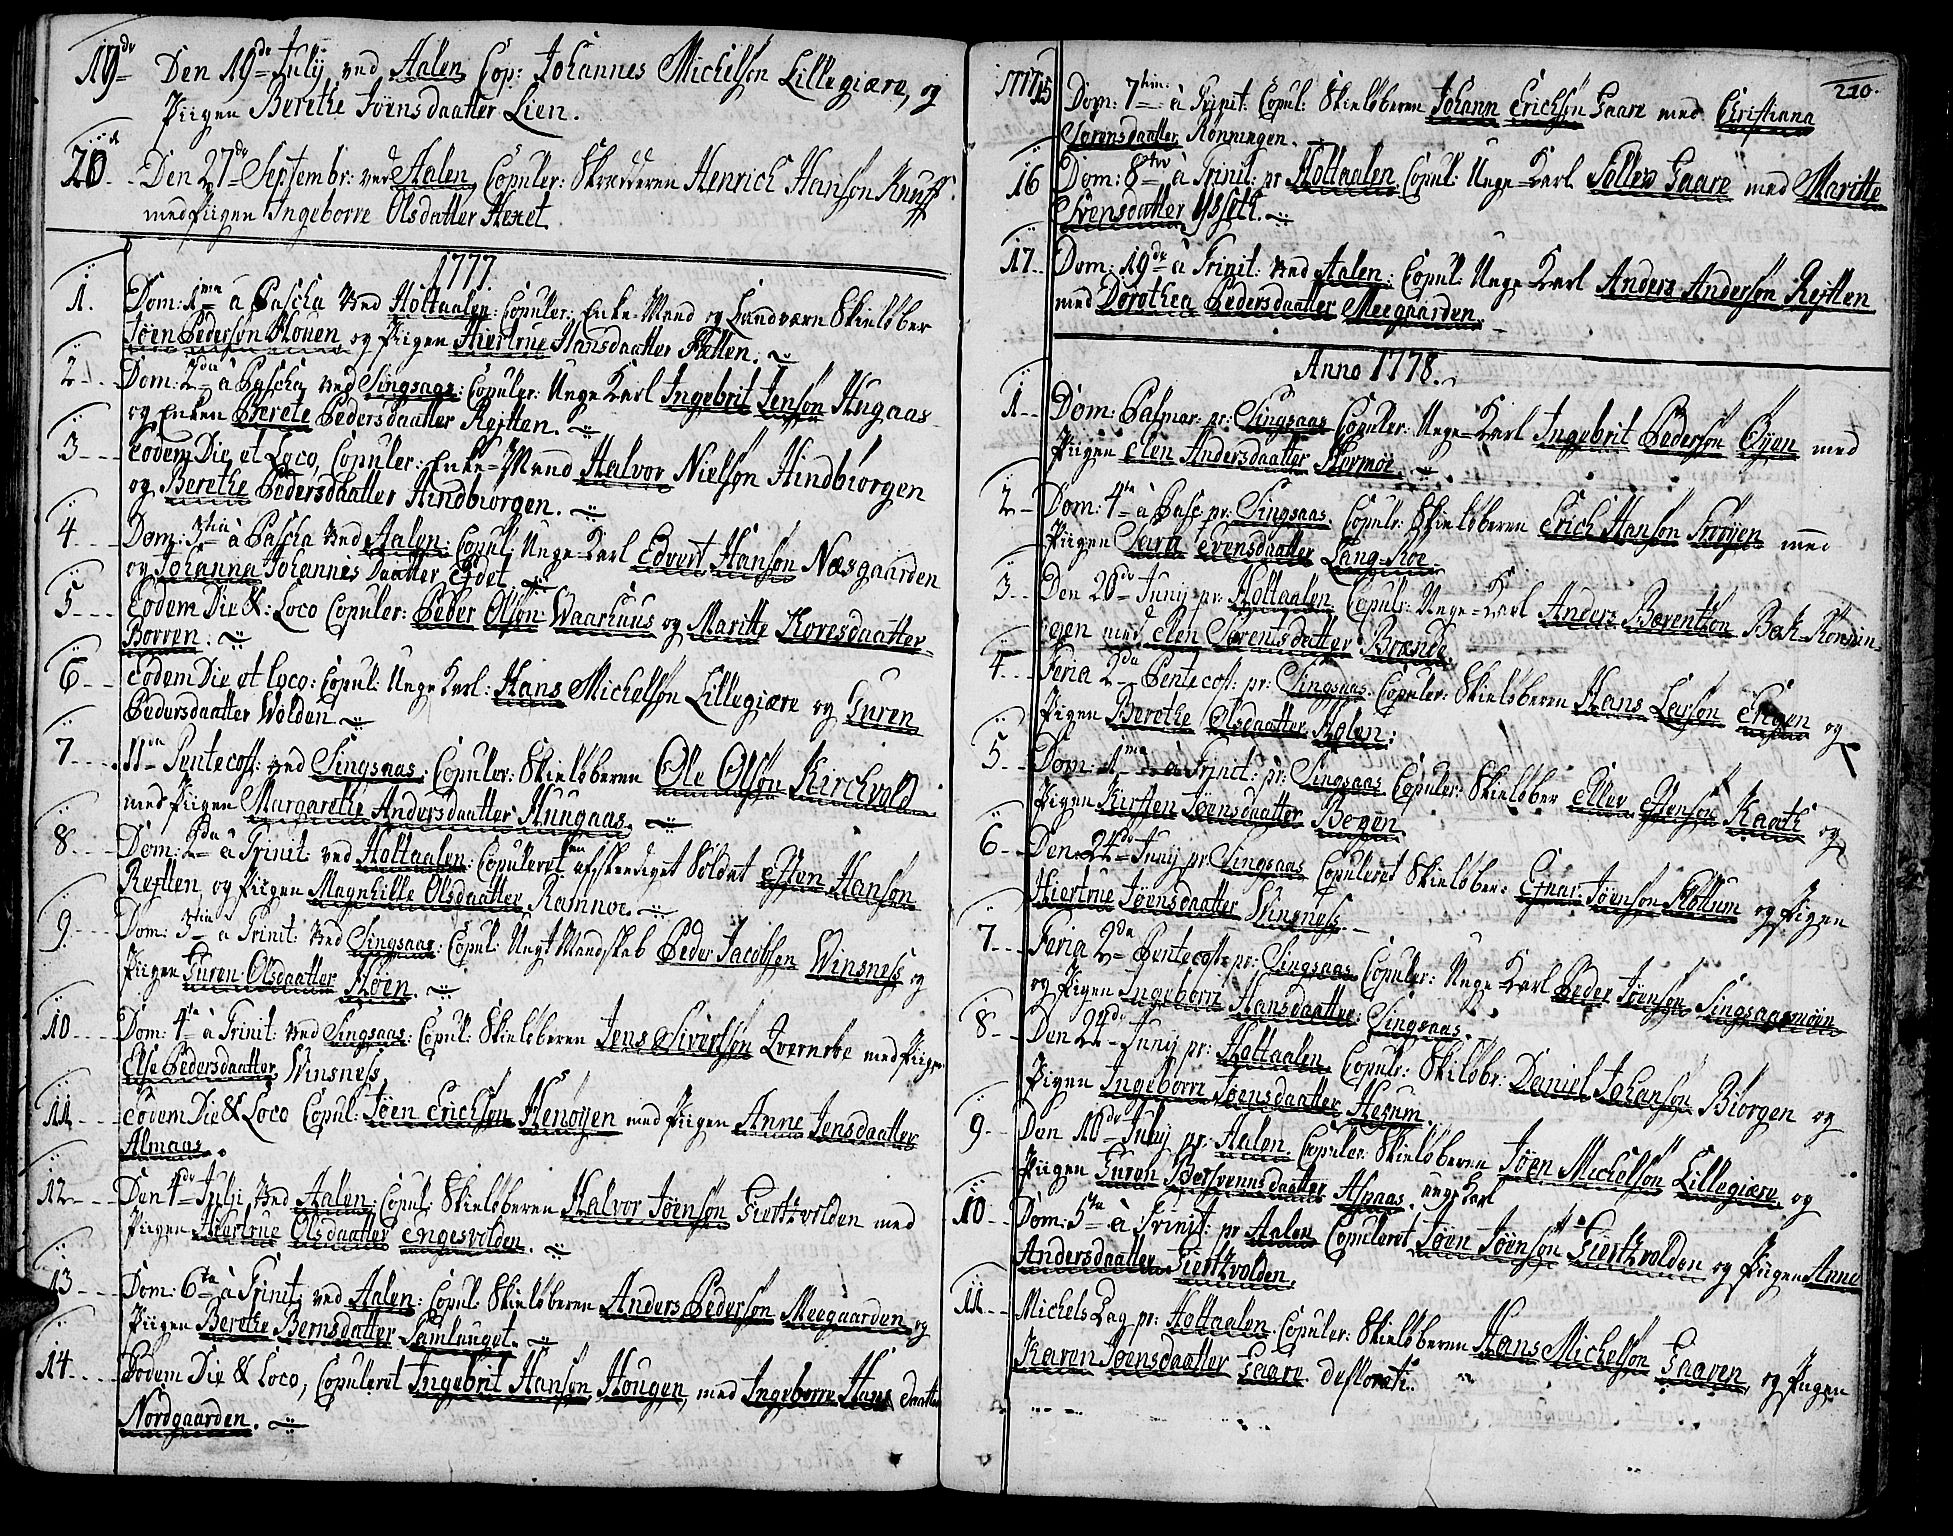 19de Den 19de July ved Aalen Cop: Johannes Michelsøn Lillegiære, og
Piigen Berethe Jøensdaatter Lien.
20. Den 27de Septembr: ved Aalen, Copuler: Skrædderen Henrich Hansøn Knuff
med Piigen Ingeborre Olsdatter Hexet
1777
1. Dom: 1ma à Pascha ved Holtaalen: Copuler: Enke-Mand og Landværn Skieløber
Jøen Pedersøn Mouen og Piigen Hiertrue Hansdaatter Fletten.
2 Dom: 2da à Pascha ved Singsaas: Copuler: Unge Karl Ingebrit Jensøn Hugaas
og Enken Berete Pedersdaatter Rejtten.
3 Eodem Die et Loco, Copuler: Enke-Mand Halvor Nielsøn Hindbiorgen
og Berethe Pedersdaatter Hindbiorgen.
4 Dom: 3tia à Pascha ved Aalen: Copul: Unge Karl Edvert Hansøn Næsgaarden
og Johanna Johannis Daatter Eidet
5 Eodem Die &: Loco Copuler: Peder Olsøn Waarhuus og Maritte Koresdaatter
Borren.
6 Eodem Die et Loco: Copul: Unge Karl: Hans Michelsøn Lillegiære og Guren
Pedersdaatter Wolden.
7 11da Pentecost: ved Singsaas: Copuler: Skieløberen Ole Olsøn Kirchvold
med Piigen Margarethe Andersdaatter Hungaas,
8 Dom: 2da à Trinit: ved Holtaalen: Copuleret en afskeediget Soldat Esten Hansøn
Rejtten og Piigen Magnhille Olsdaatter Ramnoe.
9. Dom: 3tia à Trinit: ved Singsaas: Copul: Ungt Mandskab Peder Jacobsøn Winsness og
Piigen Guren Olsdaatter Høen.
10 Dom: 4ta à Trinit: ved Singsaas: Copul: Skieløberen Jens Sivertsøn Qverneboe med Piigen
Else Pedersdaatter Winsness
11 Eodem Die & Loco Copul: Jøen Erichsøn Henøyen med Piigen Anne Jensdaatter
Almaas.
12 Den 4de Julii ved Aalen: Copul: Skieløberen Halvor Jøensøn Giertzvolden med
Piigen Hiertrue Olsdaatter Engesvolden.
13 Dom: 6ta à Trinit: ved Aalen: Copul: Skieløberen Anders Pedersøn Meegaarden og
Piigen Berethe Berns datter Samlauget.
14 Eodem Die & Loco, Copuleret Ingebrit Hansøn Hougen, med Ingeborre Hans daatter
Nordgaarden.
210.
1777 15 Dom: 7tim: à Trinit: Copul: Skieløberen Johann Erichsøn Gaare med Christiana
Sørensdaatter Rønningen.
16 Dom: 8tva à Trinit: pr Holtaalen Copul: Unge Karl Tollev Gaare med Maritte
Svensdatter Ysseth.
17 Dom: 19de à Trinit: ved Aalen: Copul: Unge Karl Anders Andersøn Rejtten
med Dorothea Pedersdaatter Meegaarden.
Anno 1778.
1 Dom: Palmar: pr: Singsaas Copuler: Unge-Karl Ingebrit Pedersøn Øyen med
Piigen Elen Andersdaatter Bormoe.
2 Dom: 4ta à Pasc pr: Singsaas: Copulr: Skieløberen Erich Hansøn Frøøyen med
Piigen Sara Evensdaatter Lang-Koe.
3 Den 26de Junij pr: Holtaalen Copulr: Unge-Karl Anders Barentsøn Bak-Rønnin-
gen med Elen Sørentsdaatter Brænde.
4 Feria 2da Pentecost: pr: Singsaas: Copuler: Skieløberen Hans Larsøn Engen og
Piigen Berethe Olsdaatter Molen:
5 Dom: 1ma à Trinit: pr: Singsaas Copuler: Skieløber Ellev Estensøn Kaath og
Piigen Kirsten Jøensdaatter Bogen
6 Den 24de Junij pr. Singsaas Copuleret Skieløber: Einar Jøensøn Flottum og Piigen
Hiertrue Jøensdaatter Winsness.
7 Feria 2da Pentecost: pr: Singsaas Copuler: Unge Karl Peder Jøensøn Singsaasmoen
og Piigen Ingeborre Hansdaatter Singsaas.
8 Den 24de Junij pr: Holtaalen Copulr: Skiløbr: Daniel Johansøn Biorgen og
Piigen Ingeborre Jøensdaatter Hesum.
9 Den 10de July pr: Aalen Copuler: Skieløberen Jøen Michelsøn Lillegiære og
Piigen Guren Bersvennsdaatter Asaas.
10 Dom: 5ta à Trinit: pr Aalen Copuleret unge Karl Jøen Jøensøn Giertzvolden og Piigen Anne
Andersdaatter Giertzvolden.
11 Michels Dag pr: Holtaalen: Copuler: Skieløberen Hans Michelsøn Gaaren, og Piigen
Karen Jøensdaatter Gaare deflorati.